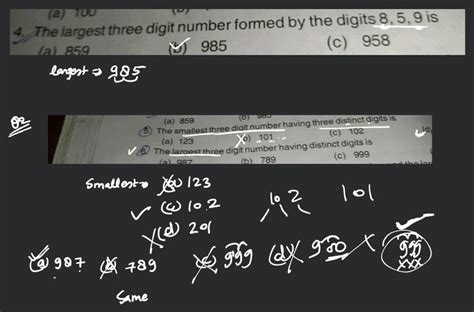 (a) 100
4. The largest three digit number formed by the digits 8, 5, 9 is
(a) 859 (b) 985 (c) 958
largest ⇒ 985
Q2
(a) 859 (b) 985
5. The smallest three digit number having three distinct digits is
(a) 123 (b) 101 (c) 102
6. The largest three digit number having distinct digits is
(a) 987 (b) 789 (c) 999
Smallest → (a) 123
(c) 102 102 101
(d) 201
(a) 987 (b) 789 (c) 999 (d)
same